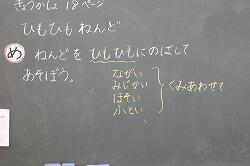 きょうかしょ 18ページ
ひもひもねんど
め ねんどを ひもひもにのばして
あそぼう。
ながい
みじかい
ほそい
ふとい
くみあわせて